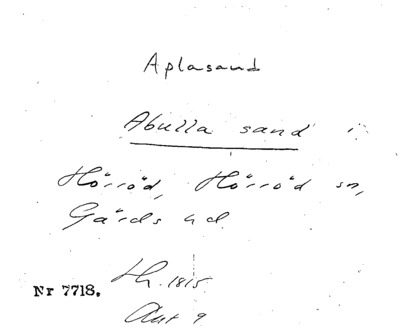 Aplasand
Abulla sand i
Hörröd, Hörröd sn,
Gärds hd
Lh. 1815
Nr 7718.
Akt 9